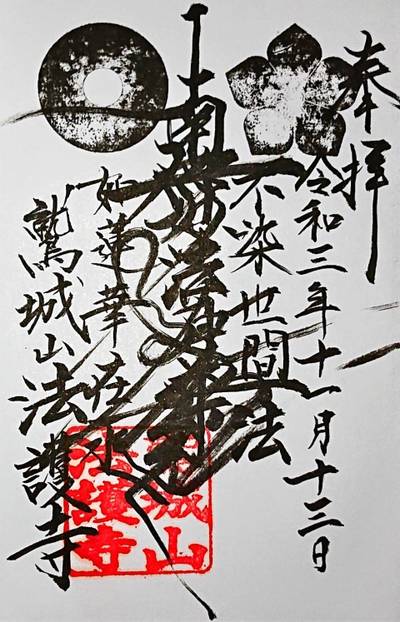 奉拝
令和三年十一月十三日
不染世間法
南無妙法蓮華経
如蓮華在水
鷲城山法護寺
城山
法護寺